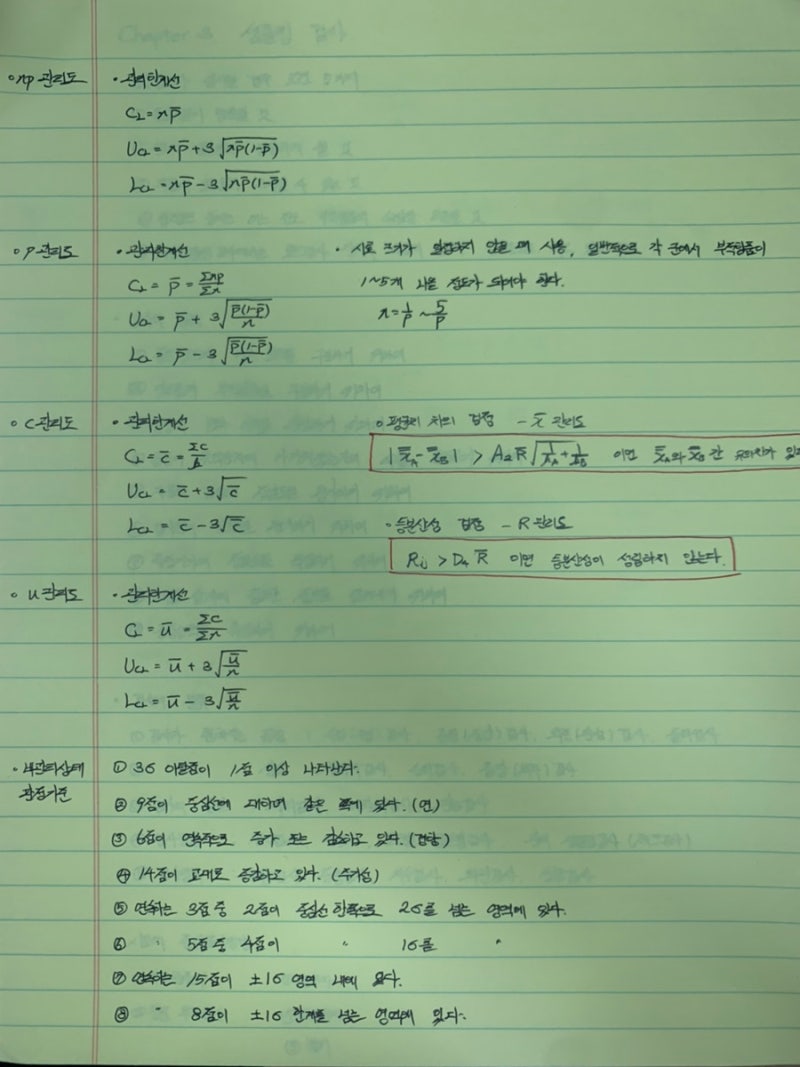 • np 관리도
• 관리한계선
CL = np̄
UCL = np̄ + 3√(np̄(1-p̄))
LCL = np̄ - 3√(np̄(1-p̄))
• p 관리도
• 관리한계선
CL = p̄ = Σnp/Σn
UCL = p̄ + 3√(p̄(1-p̄)/n)
LCL = p̄ - 3√(p̄(1-p̄)/n)
• 시료 크기가 일정하지 않을 때 사용, 일반적으로 각 군에서 부적합품이
1~5개 나올 정도가 되어야 한다.
n = 1/p ~ 5/p
• C 관리도
• 관리한계선
CL = c̄ = Σc/k
UCL = c̄ + 3√c̄
LCL = c̄ - 3√c̄
• 평균치 차의 검정 - x̄ 관리도
|x̄A - x̄B| > A₂R̄√(1/kA + 1/kB) 이면 x̄A와 x̄B 간 유의차가 있다
• 등분산성 검정 - R 관리도
Rij > D₄R̄ 이면 등분산성이 성립하지 않는다.
• u 관리도
• 관리한계선
CL = ū = Σc/Σn
UCL = ū + 3√(ū/n)
LCL = ū - 3√(ū/n)
• 비관리상태
판정기준
① 3σ 이탈점이 1점 이상 나타난다.
② 9점이 중심선에 대하여 같은 쪽에 있다. (연)
③ 6점이 연속적으로 증가 또는 감소하고 있다. (경향)
④ 14점이 교대로 증감하고 있다. (주기성)
⑤ 연속하는 3점 중 2점이 중심선 한쪽으로 2σ를 넘는 영역에 있다.
⑥ 〃 5점 중 4점이 〃 1σ를 〃
⑦ 연속하는 15점이 ±1σ 영역 내에 있다.
⑧ 〃 8점이 ±1σ 한계를 넘는 영역에 있다.